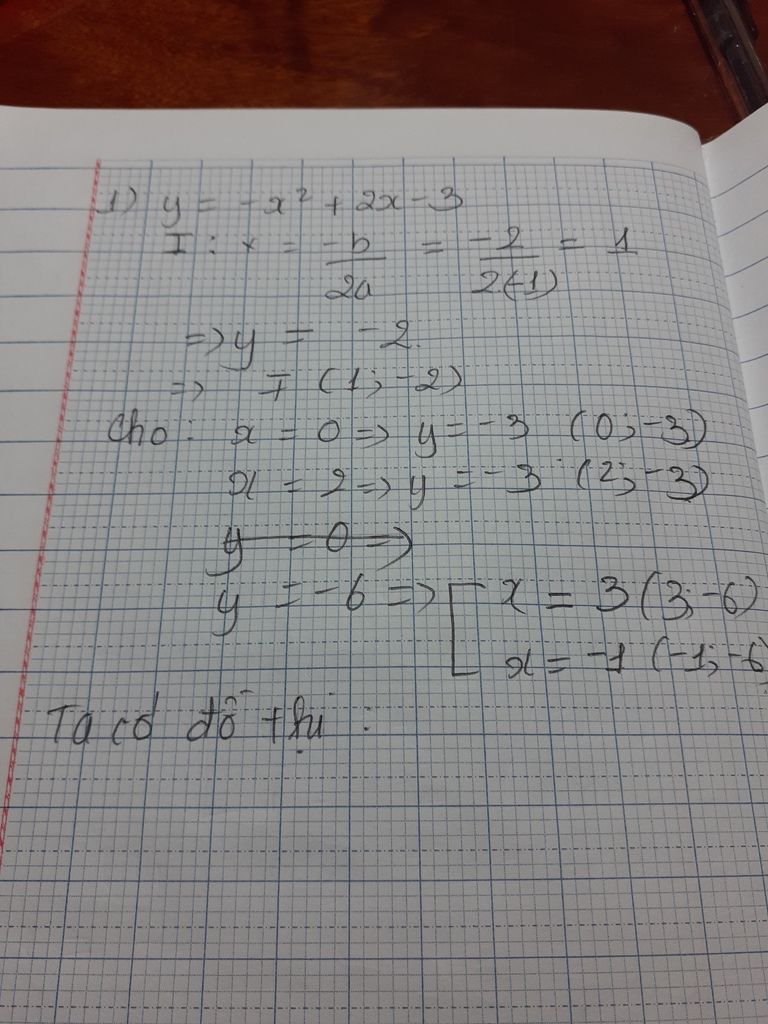 1) y = -x² + 2x - 3
I: x = -b/2a = -2/2(-1) = 1
=> y = -2.
=> I (1; -2)
Cho: x = 0 => y = -3 (0; -3)
x = 2 => y = -3 (2; -3)
y = 0 =>
y = -6 => [ x = 3 (3; -6)
x = -1 (-1; -6
Ta có đồ thị: